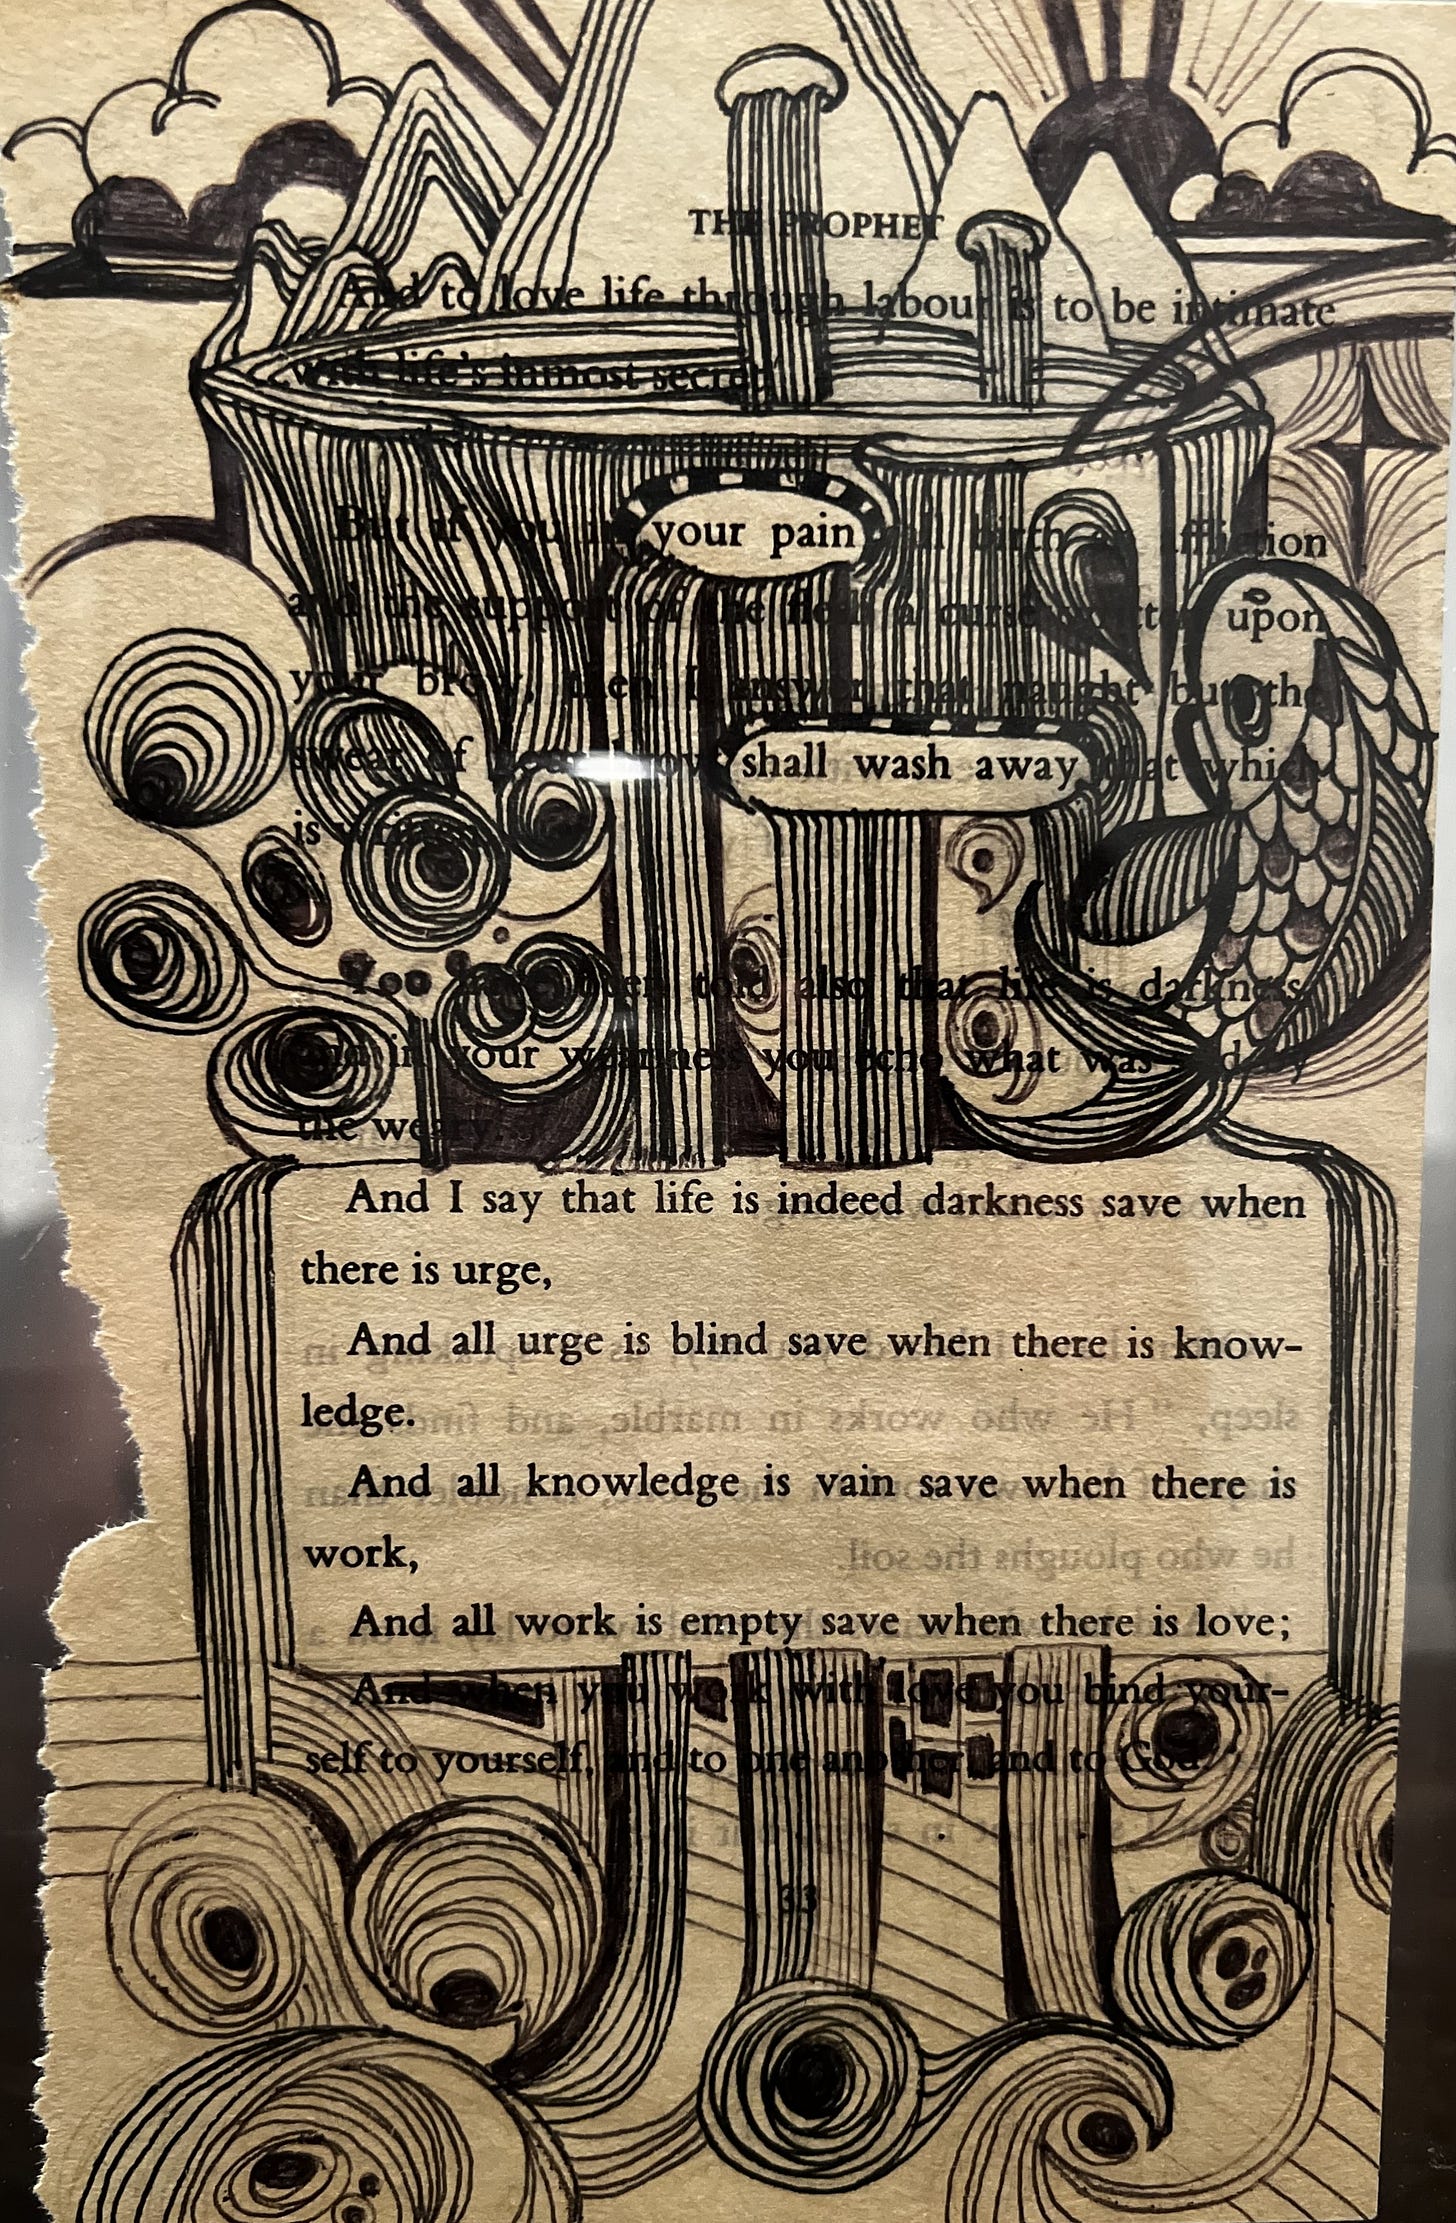 THE PROPHET
And to love life through labour is to be intimate
with life's inmost secret.
But if you in your pain call birth an affliction
and the support of the flesh a curse written upon
your brow, then I answer that naught but the
sweat of your brow shall wash away that which
is written.
You have been told also that life is darkness,
and in your weariness you echo what was said by
the weary.
And I say that life is indeed darkness save when
there is urge,
And all urge is blind save when there is know-
ledge.
And all knowledge is vain save when there is
work,
And all work is empty save when there is love;
And when you work with love you bind your-
self to yourself, and to one another, and to God.
33